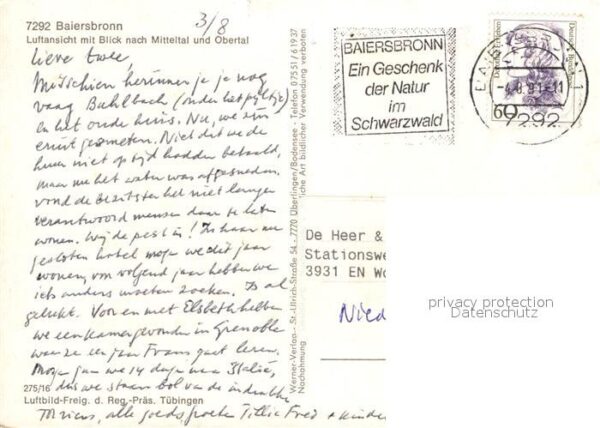 7292 Baiersbronn
3/8
Luftansicht mit Blick nach Mitteltal und Obertal
Lieve
Misschien herinner je je nog
vaag Buhlbach (onder het pijltje)
en het oude huis. Nu, we zijn
eruit gesmeten. Niet dat we de
huur niet op tijd hadden betaald,
maar het water was afgesneden
vond de bezitster het niet langer
verantwoord mensen daar te laten
wonen. Wij de pest in! In haar nu
gesloten hotel mogen we dit jaar
wonen, voor volgend jaar hebben we
iets anders moeten zoeken. Is al
gelukt. Voor en met Elsbeth hebben
we een kamer gevonden in Grenoble
waar ze een jaar Frans gaat leren.
Morgen gaan we 14 dagen naar Italië,
dus we staan bol van de indrukken
Tot ziens, alle goeds, groeten Tillie Fred + kinderen
275/16
Luftbild-Freig. d. Reg.-Präs. Tübingen
Werner-Verlag - St.-Ulrich-Straße 54 - 7770 Überlingen/Bodensee - Telefon 07551/61937
Nachahmung
jeder Art bildlicher Verwendung verboten
BAIERSBRONN
Ein Geschenk
der Natur
im
Schwarzwald
Deutsche Bundespost
60
BAIERSBRONN 1
-4.8.91-11
7292
De Heer &
Stationswe
3931 EN Wo
Nied
privacy protection
Datenschutz